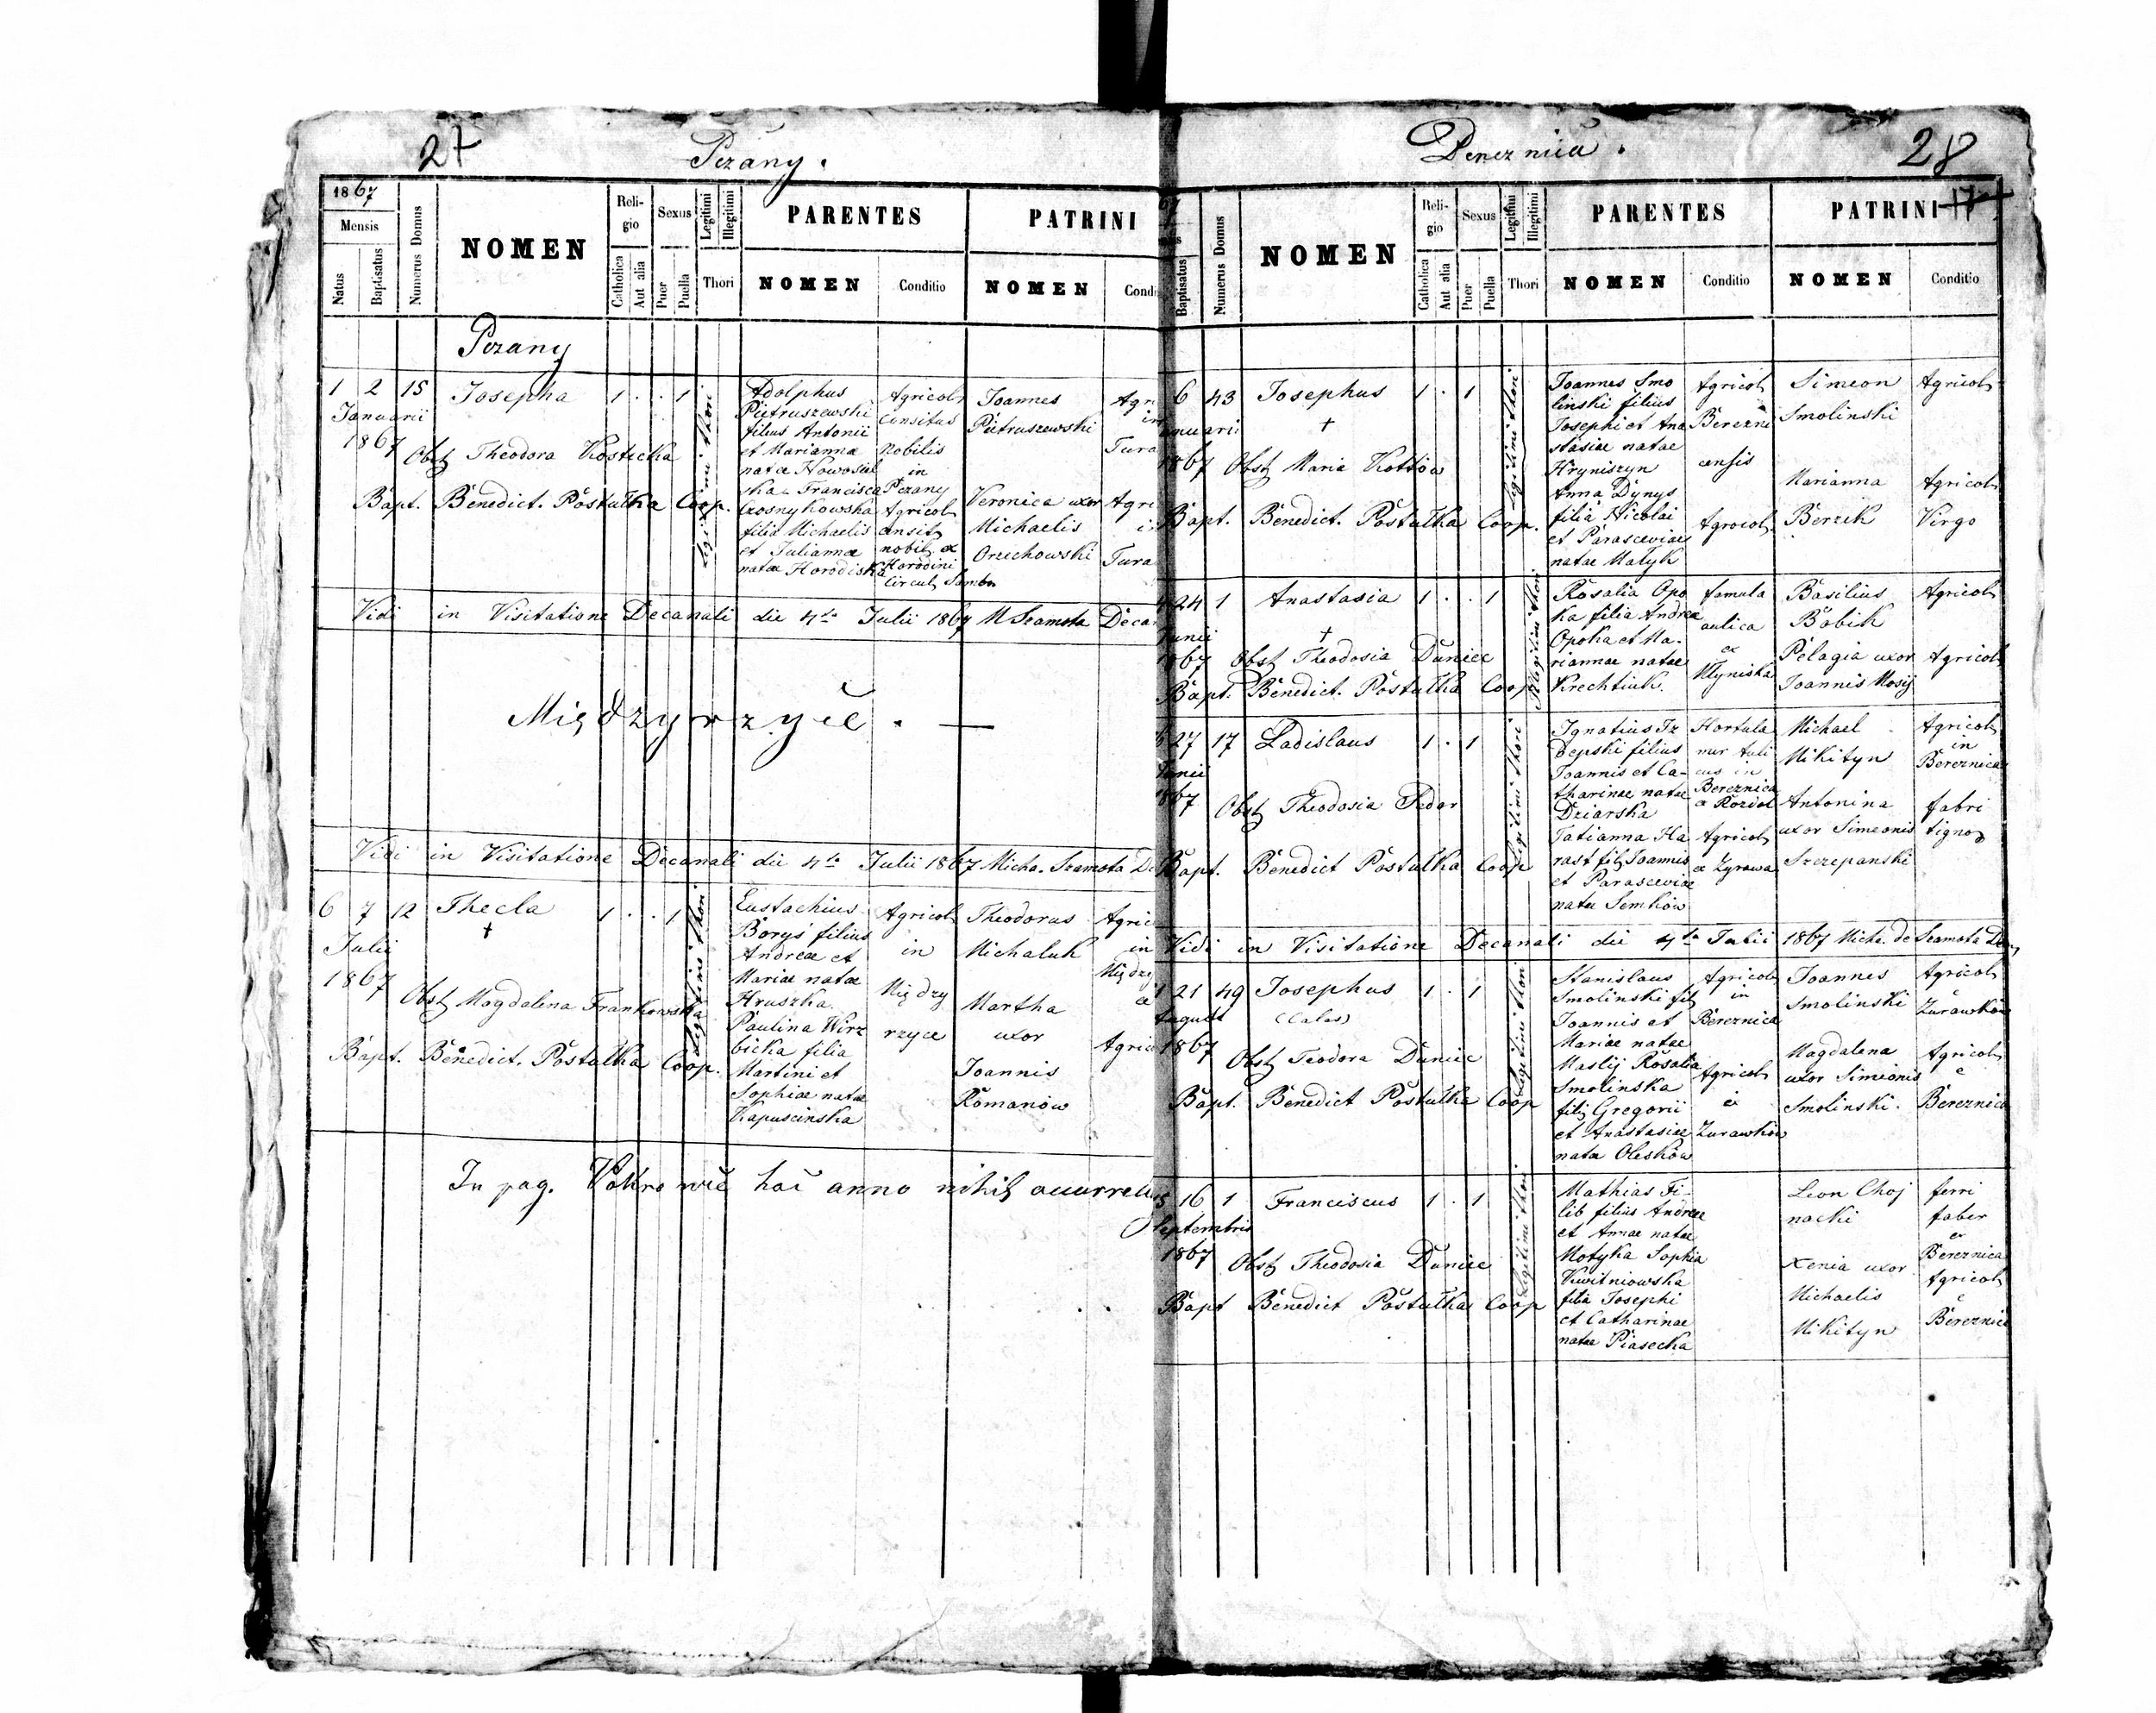 27
Pczany .
1867
Mensis
Natus
Baptisatus
Numerus Domus
NOMEN
Reli-
gio
Catholica
Aut alia
Sexus
Puer
Puella
Legitimi
Illegitimi
Thori
PARENTES
NOMEN
Conditio
PATRINI
NOMEN
Condi
Pczany
1 2 15 Josepha 1 . . 1
Januarii
1867
Obst Theodora Kosticka
Bapt. Benedict. Postułka Coop.
legitimi thori
Adolphus
Pietruszewski
filius Antonii
et Marianna
natae Nowosiel
ska. Francisca
Czosnykowska
filia Michaelis
et Julianna
natae Horodiska
Agricola
censitus
nobilis
in
Pczany
Agricola
nobilis ex
Horodini
Circul. Sambor
Joannes
Pietruszewski
Veronica uxor
Michaelis
Orzechowski
Agri
in
Tura
Agri
Tura
Vidi in Visitatione Decanali die 4ta Julii 1867 M Szamota Deca
Międzyrzyce . —
Vidi in Visitatione Decanali die 4ta Julii 1867 Micha. Szamota De
6 7 12 Thecla 1 . . 1
†
Julii
1867
Obst Magdalena Frankowska
Bapt. Benedict. Postułka Coop.
legitimi thori
Eustachius
Boryś filius
Andreae et
Mariae natae
Hruszka.
Paulina Wirz
bicka filia
Martini et
Sophiae natae
Kapuscinska
Agricola
in
Między
rzyce
Theodorus
Michaluk
Martha
uxor
Joannis
Romanów
Agric
in
Między
Agrico
In pag. hac anno nihil occurrebat
Bereznica .
28
17
Baptisatus
Numerus Domus
NOMEN
Reli-
gio
Catholica
Aut alia
Sexus
Puer
Puella
Legitimi
Illegitimi
Thori
PARENTES
NOMEN
Conditio
PATRINI
NOMEN
Conditio
6 43 Josephus 1 . 1
†
anuarii
1867 Obst Maria Kottów
Bapt. Benedict. Postułka Coop.
legitimi thori
Joannes Smo
linski filius
Josephi et Ana
stasiae natae
Hryniszyn
Anna Dynys
filia Nicolai
et Parasceviae
natae Matyk
Agricola
Berezni
censis
Agricola
Simeon
Smolinski
Marianna
Berzik
Agricola
Agricola
Virgo
24 1 Anastasia 1 . . 1
†
Junii
1867 Obst Theodosia Duniec
Bapt. Benedict. Postułka Coop
Illegitimi thori
Rosalia Opo
ka filia Andrea
Opoka et Ma-
riannae natae
Krechtiuk.
famula
aulica
ex
Kłyniska
Basilius
Bobik
Pelagia uxor
Joannis Mosij
Agricola
Agricola
27 17 Ladislaus 1 . 1
Junii
1867 Obst Theodosia Fedor
Bapt. Benedict Postułka Coop
legitimi thori
Ignatius Fr
Depski filius
Joannis et Ca-
tharinae natae
Dziarska
Tatianna Ha
rast fil Joannis
et Parasceviae
natae Semków
Hortula
nus auli
cus in
Bereznica
a Rozdol
Agricola
ex Zyrawa
Michael
Mikityn
Antonina
uxor Simeonis
Szczepanski
Agricola
in
Bereznica
fabri
lignar
Vidi in Visitatione Decanali die 4ta Julii 1867 Mich. de Szamota Dec
21 49 Josephus 1 . 1
(Calas)
August
1867
Obst Teodora Duniec
Bapt. Benedict Postułka Coop
legitimi thori
Stanislaus
Smolinski fil
Joannis et
Mariae natae
Maslij Rosalia
Smolinska
fil Gregorii
et Anastasiae
natae Oleskow
Agricola
in
Bereznica
Agricola
e
Zurawków
Joannes
Smolinski
Magdalena
uxor Simeonis
Smolinski.
Agricola
e
Zurawków
Agricola
e
Bereznica
5 16 1 Franciscus 1 . 1
Septembris
1867
Obst Theodosia Duniec
Bapt Benedict Postułka Coop
legitimi thori
Mathias Fi-
lib filius Andreae
et Annae natae
Motyka Sophia
Kwitniowska
filia Josephi
et Catharinae
natae Piasecka
Leon Choj
nacki
Xenia uxor
Michaelis
Mikityn
ferri
faber
ex
Bereznica
Agricola
e
Bereznica